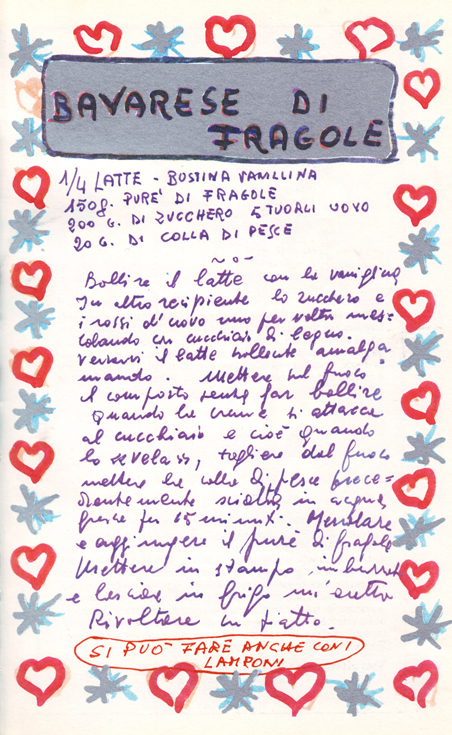 BAVARESE DI
FRAGOLE
1/4 LATTE - BUSTINA VANILLINA
150g. PURE' DI FRAGOLE
200 G. DI ZUCCHERO 5 TUORLI UOVO
20 G. DI COLLA DI PESCE
~ o -
Bollire il latte con la vaniglina
In altro recipiente lo zucchero e
i rossi d'uovo uno per volta mes=
colando con cucchiaio di legno.
Versarvi il latte bollente amalga
mando. Mettere sul fuoco
il composto senza far bollire
Quando la crema si attacca
al cucchiaio e cioè quando
lo vela, togliere dal fuoco
mettere la colla di pesce prece=
dentemente sciolta in acqua
fresca per 15 minuti. Mescolare
e aggiungere il purè di fragole
Mettere in stampo imburrato
e lasciare in frigo
Rivoltare in piatto.
SI PUO' FARE ANCHE CON I
LAMPONI